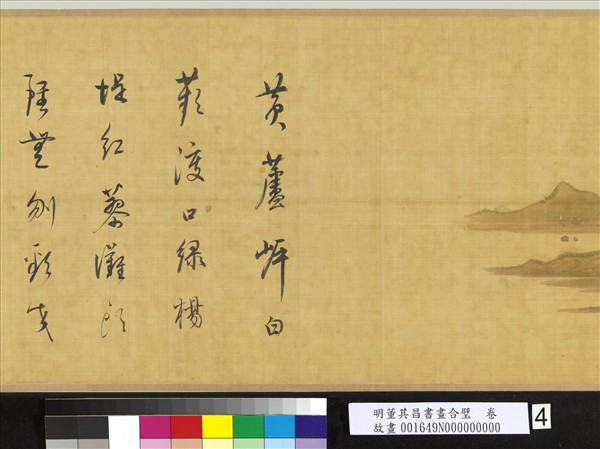 黃蘆岸白
蘋渡口綠楊
堤紅蓼灘頭
雖無刎頸交
明董其昌書畫合璧 卷
故畫 001649N000000000
4